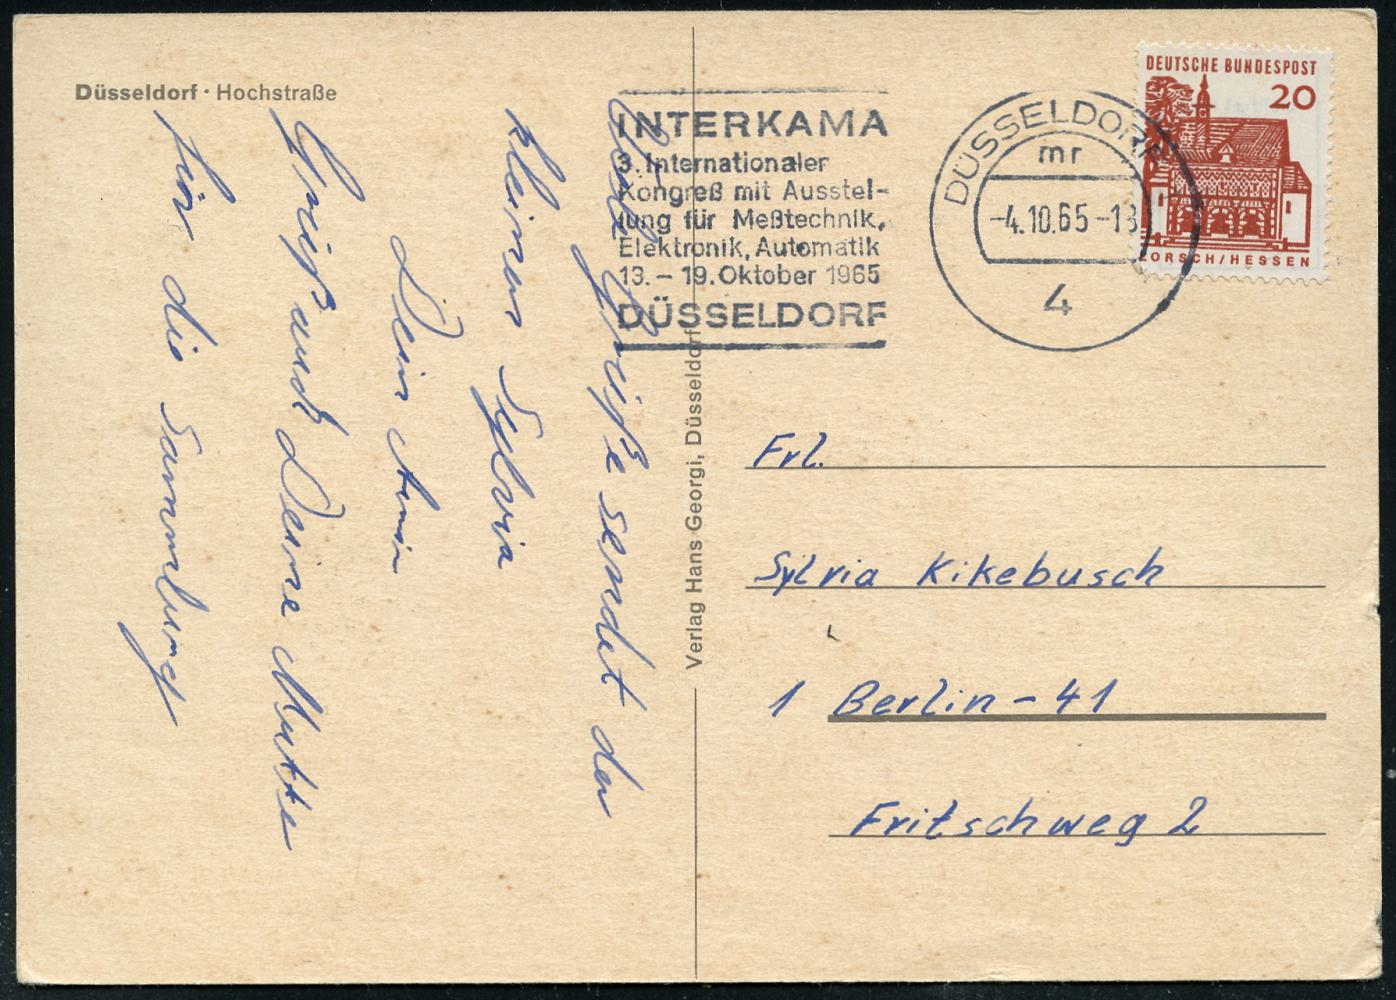 Düsseldorf · Hochstraße
Viele Grüße sendet der
kleinen Sylvia
Dein Armin
Gruß auch Deine Mutti
für die Sammlung
Verlag Hans Georgi, Düsseldorf
INTERKAMA
3. Internationaler
Kongreß mit Ausstel-
lung für Meßtechnik,
Elektronik, Automatik
13. – 19. Oktober 1965
DÜSSELDORF
DÜSSELDORF
mr
-4.10.65-18
4
DEUTSCHE BUNDESPOST
20
LORSCH/HESSEN
Frl.
Sylvia Kikebusch
1 Berlin - 41
Fritschweg 2